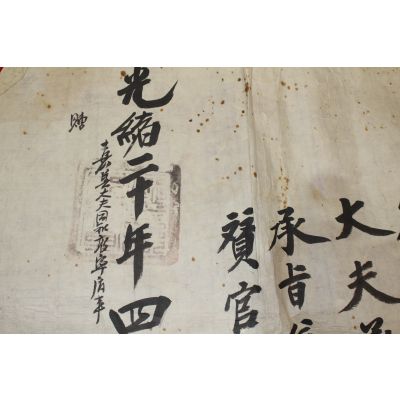 大夫
承旨
贊官
光緖二十年四
贈
大夫同知敦寧府事